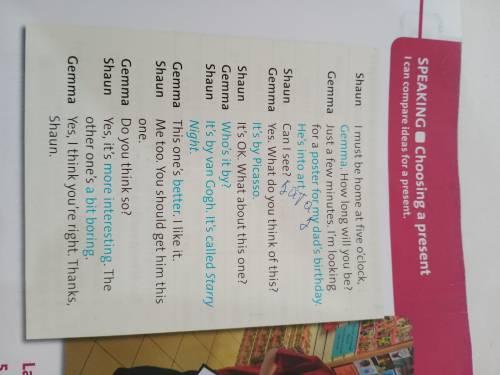 SPEAKING ■ Choosing a present
I can compare ideas for a present.
Shaun I must be home at five o'clock,
Gemma. How long will you be?
Gemma Just a few minutes. I'm looking
for a poster for my dad's birthday.
He's into art.
Shaun Can I see?
Gemma Yes. What do you think of this?
It's by Picasso.
Shaun It's OK. What about this one?
Gemma Who's it by?
Shaun It's by van Gogh. It's called Starry
Night.
Gemma This one's better. I like it.
Shaun Me too. You should get him this
one.
Gemma Do you think so?
Shaun Yes, it's more interesting. The
other one's a bit boring.
Gemma Yes, I think you're right. Thanks,
Shaun.